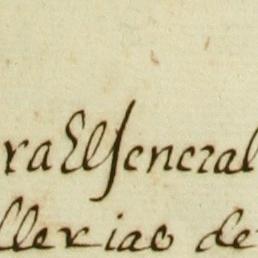 ra El General
llerias de